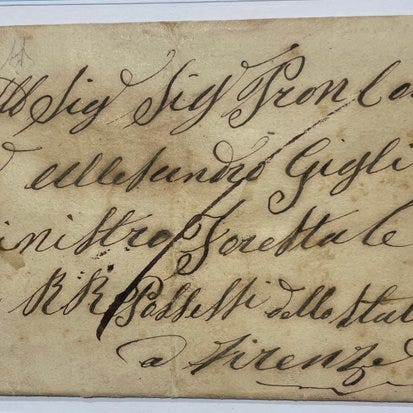 Sig Sig Pron Co
Allessandro Gigli
inistro Forestale
RR Possessi dello Stat
a Firenze